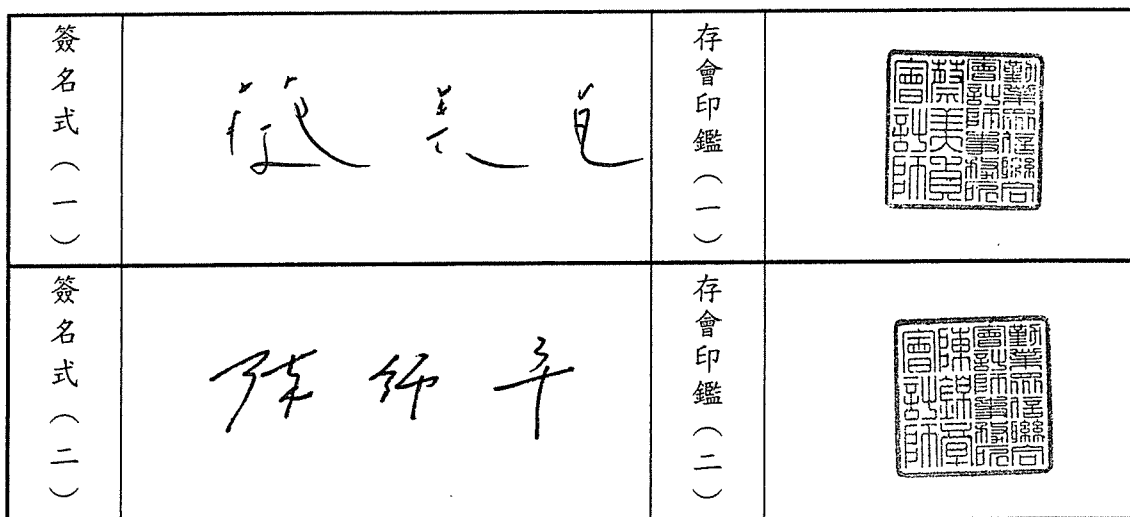 簽名式（一）
存會印鑑（一）
勤業眾信聯合
會計師事務所
蔡美貞
會計師
簽名式（二）
存會印鑑（二）
勤業眾信聯合
會計師事務所
陳
會計師